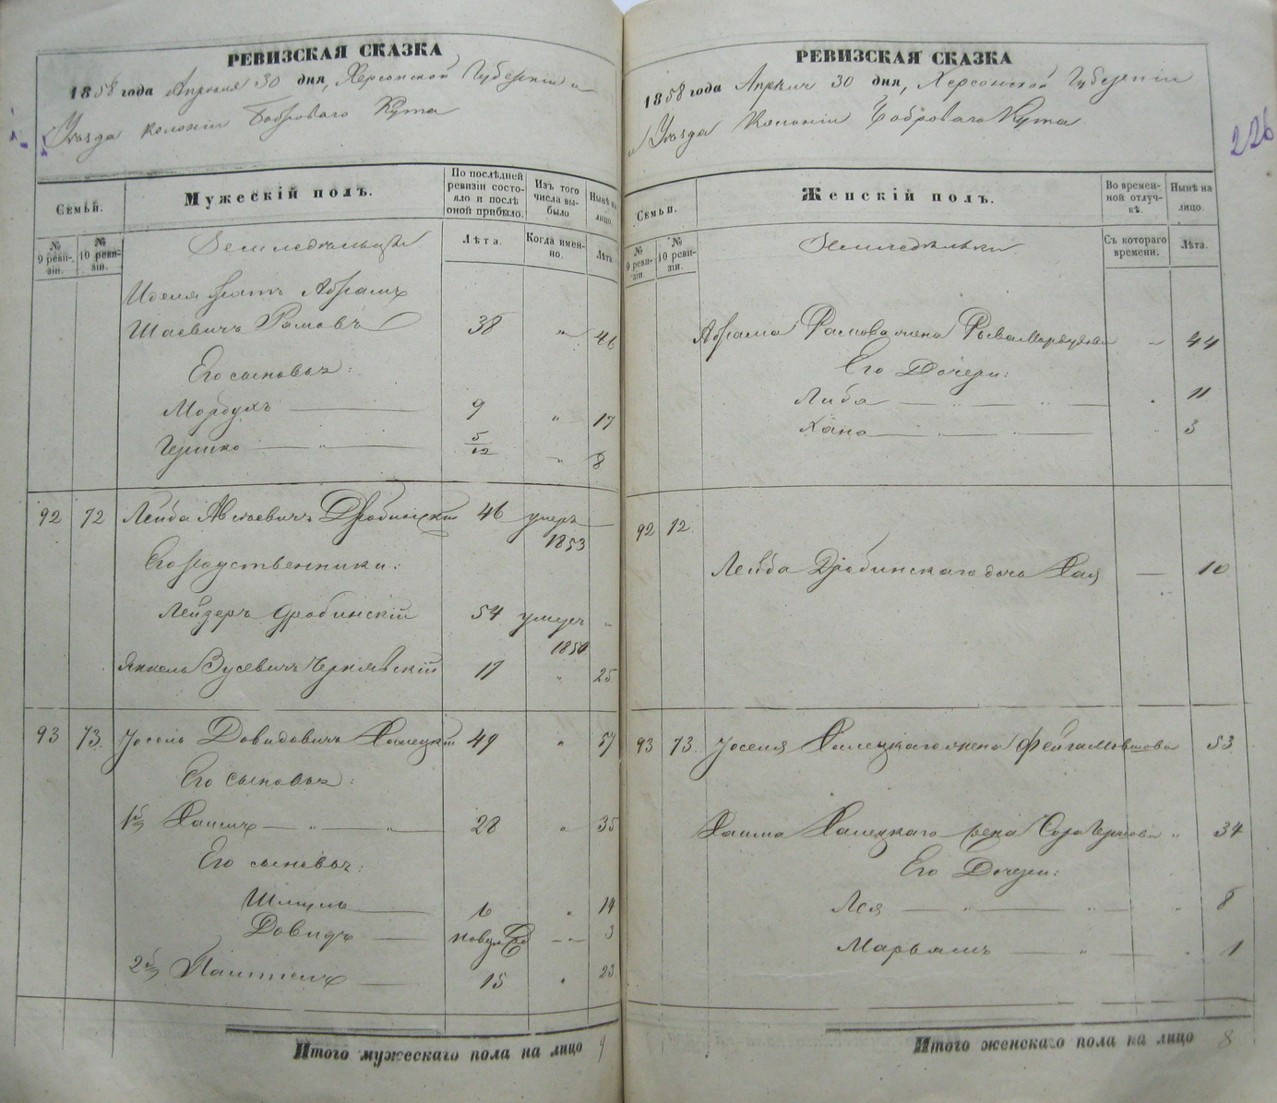 РЕВИЗСКАЯ СКАЗКА
1858 года Апреля 30 дня, Херсонской Губернии и
Уѣзда колонии Боброваго Кута
Семьи.
Мужескій полъ.
По послѣдней ревизіи состояло и послѣ оной прибыло.
Изъ того числа выбыло
Нынѣ на лицо.
№ 9 ревизіи.
№ 10 ревизіи.
Лѣта.
Когда именно.
Лѣта.
Земледельцы
братъ Абрамъ
Шаевичъ 38 „ 46
Его сыновья:
Мордухъ 9 „ 17
Гершко 5/12 „ 8
92 72 Лейба Дробинскій 46 умеръ
1853
Его родственники:
Лейзеръ Дробинскій 54 умеръ „
1850
Янкель Вусевичъ Чернявскій 17 „ 25
93 73 Іосель Довидовичъ 49 „ 57
Его сыновья:
1й Хаимъ „ „ 28 „ 35
Его сыновья:
Шмуль 6 „ 14
Довидъ 3
2й 15 „ 23
Итого мужескаго пола на лицо 9
РЕВИЗСКАЯ СКАЗКА
1858 года Апреля 30 дня, Херсонской Губернии
и Уѣзда Колонии Боброваго Кута
226
Семьи.
Женскій полъ.
Во временной отлучкѣ.
Нынѣ на лицо.
№ 9 ревизіи.
№ 10 ревизіи.
Съ котораго времени.
Лѣта.
Земледельки
Абрама жена Рыва 44
Его Дочери:
Либа 11
Хана 3
92 72
Лейба Дробинскаго дочь Хая — 10
93 73 Іоселя жена Фейга Мовшова 53
Хаима жена Сора „ 34
Его Дочери:
Лея 8
Марьямъ „ 1
Итого женскаго пола на лицо 8